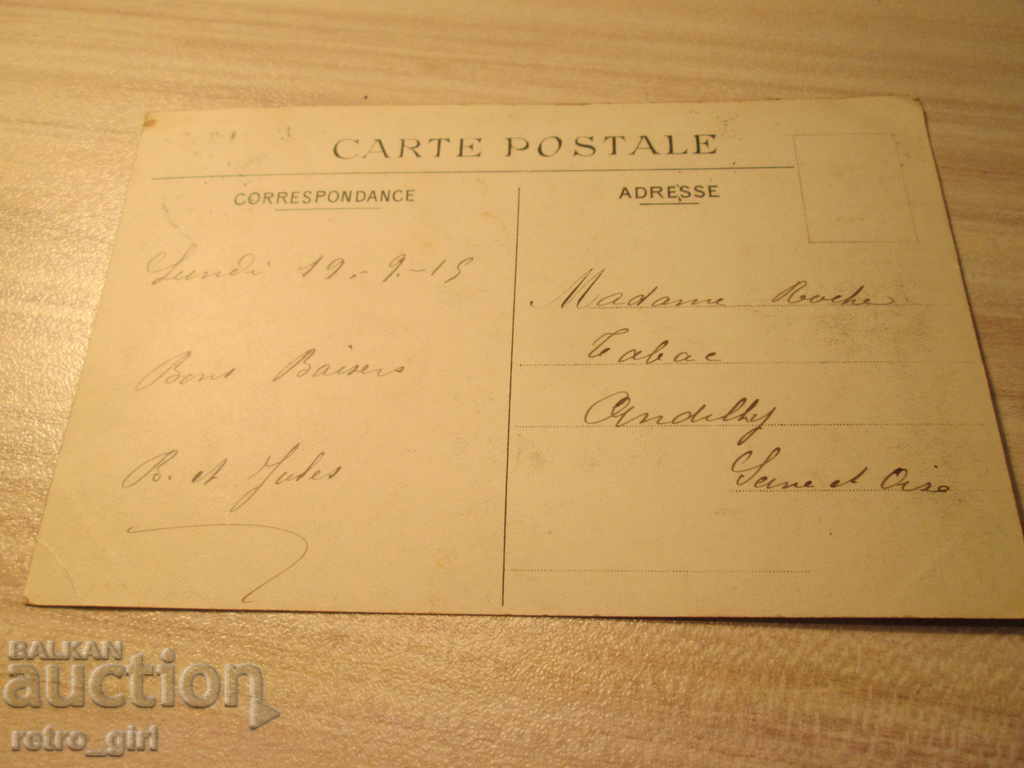 CARTE POSTALE
CORRESPONDANCE
Lundi 19-9-15
Bons Baisers
R. et Jules
ADRESSE
Madame Roche
Tabac
Andilly
Seine et Oise
BALKAN
auction
retro_girl